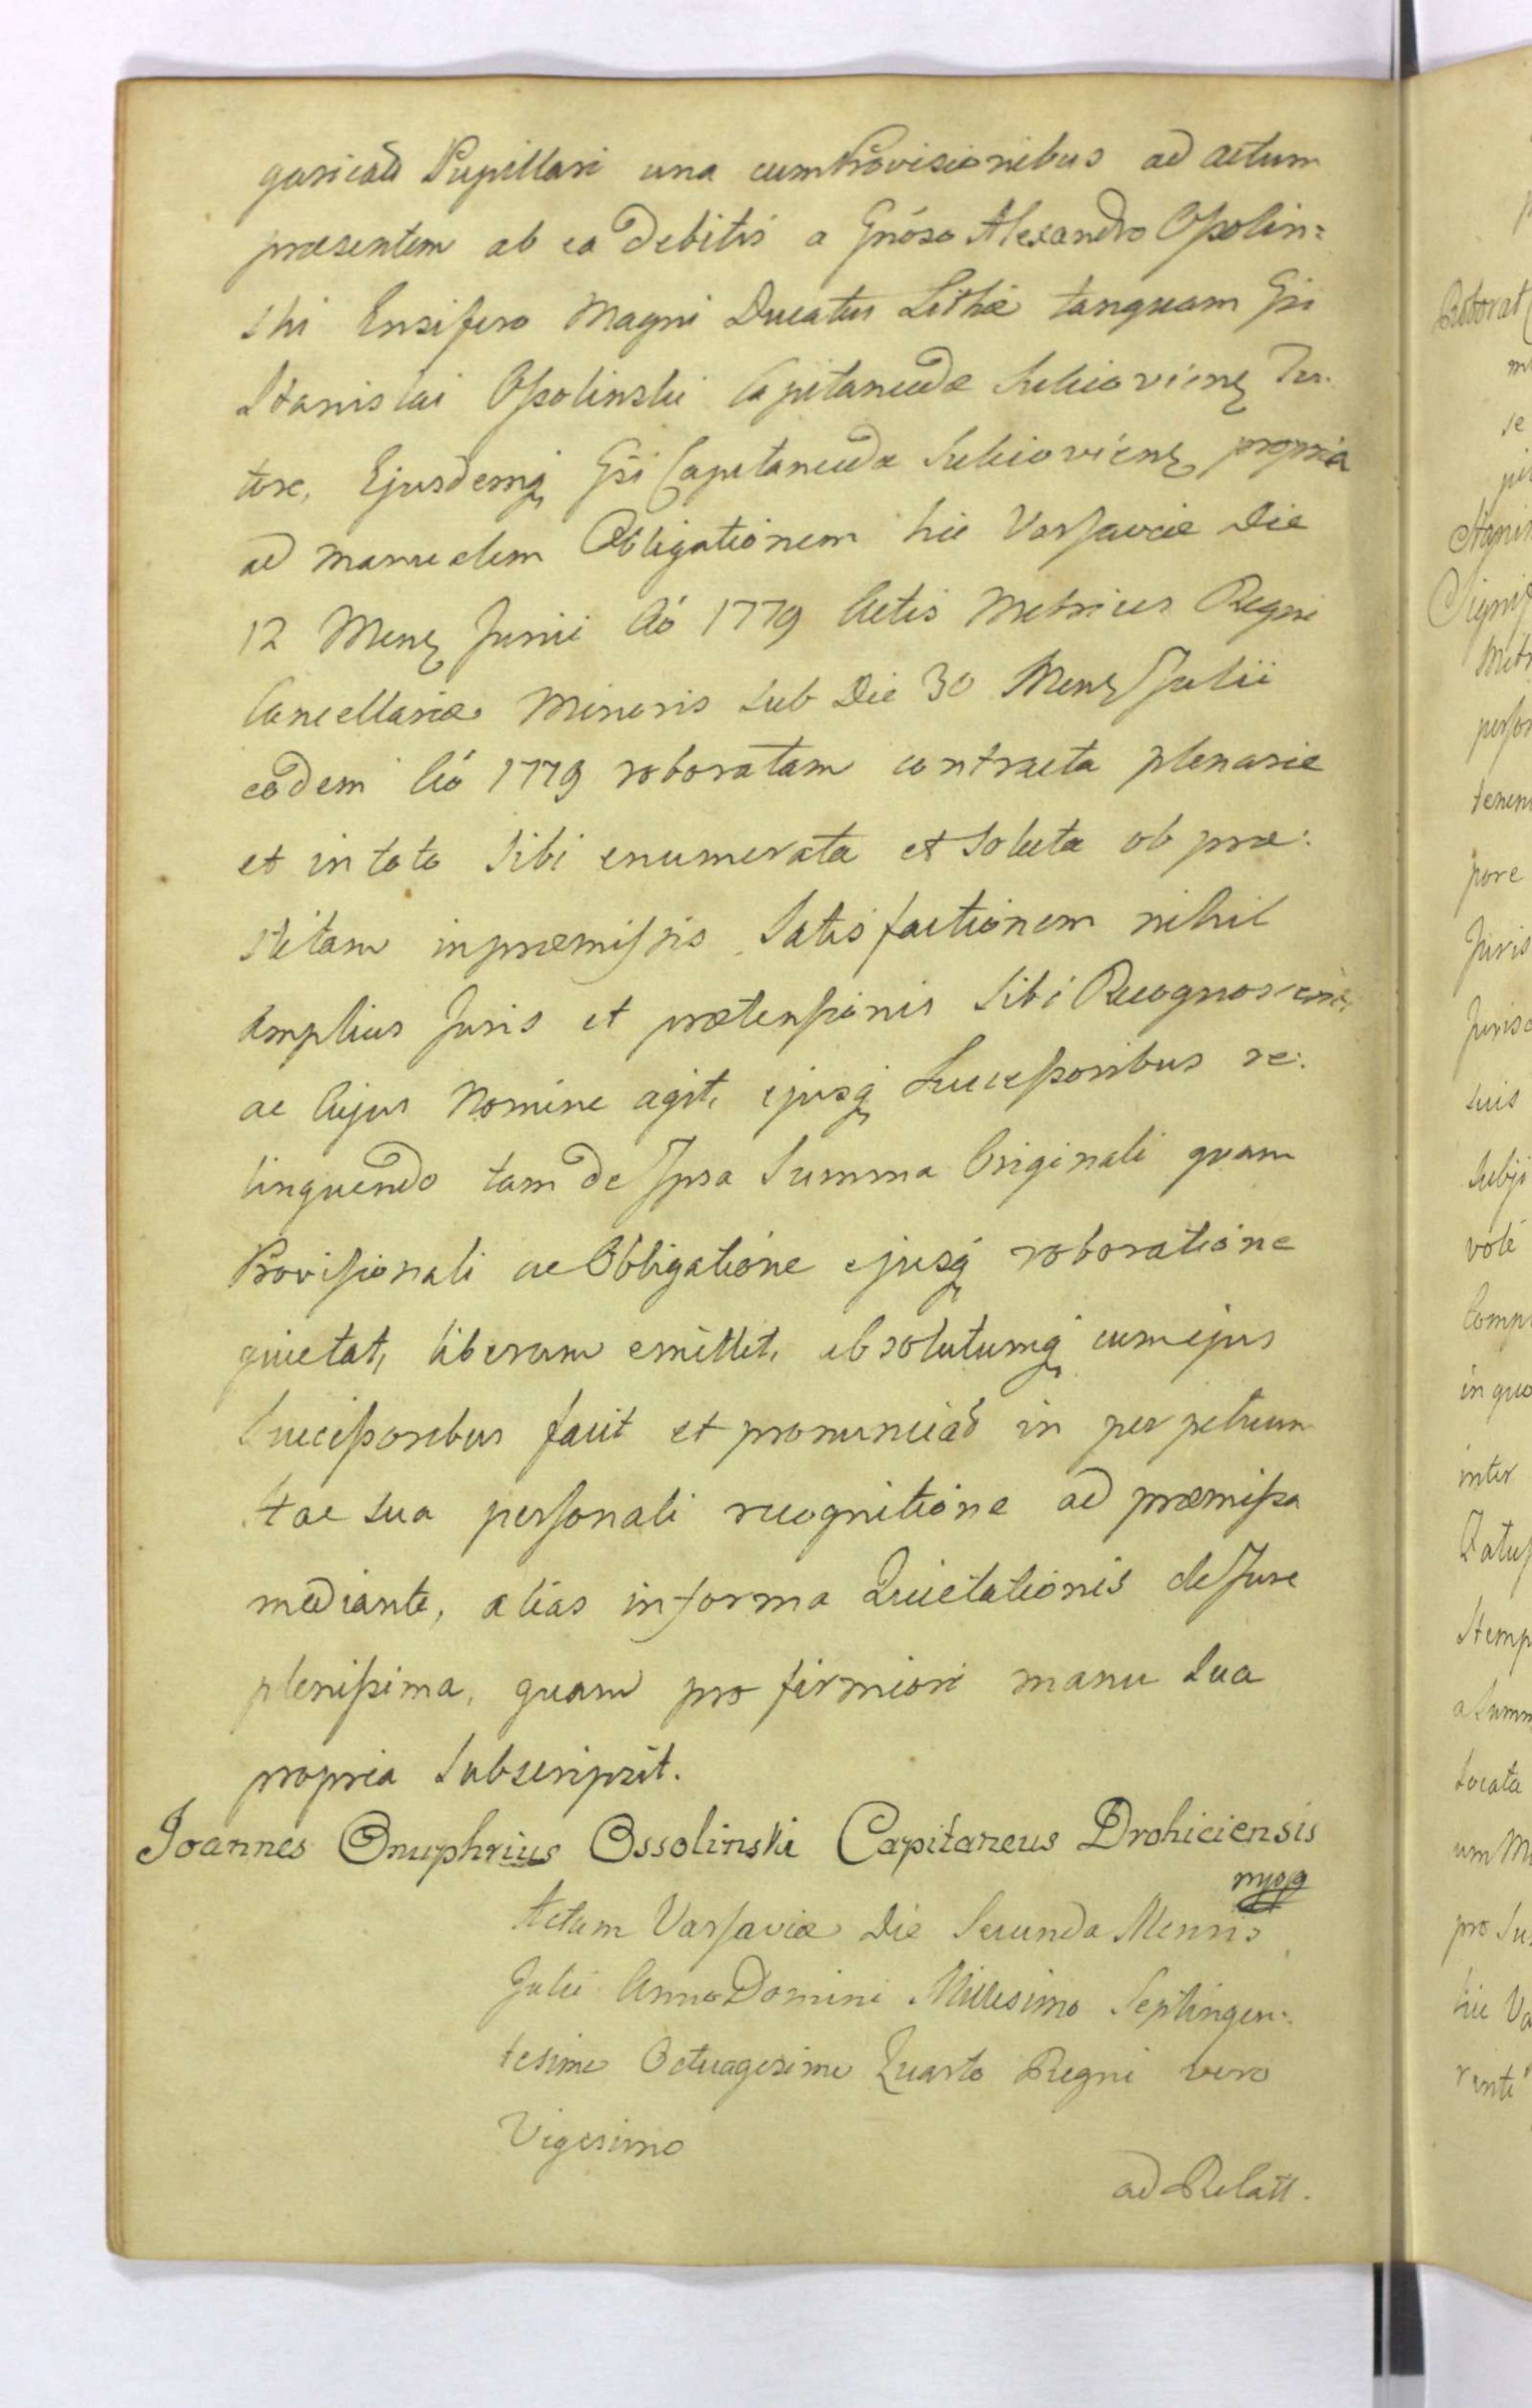 garicali Pupillari una cum Provisionibus ad actum
praesentem ab ea debitis a Gnoso Alexandro Ossolin=
ski Ensifero Magni Ducatus Lithae tanquam Gsi
Stanislai Ossolinski Capitaneidae Sulciovieñ Tu-
tore, Ejusdemq Gsi Capitaneidae Sulciovieñ propria
ad manualem Obligationem hic Varsaviae Die
12 Mens Junii Aō 1779 Actis Metrices Regni
Cancellariae Minoris sub Die 30 Mens Julii
eodem Aō 1779 roboratam contracta plenarie
et in toto Sibi enumerata et Soluta ob prae:
stitam in praemissis Satisfactionem nihil
amplius Juris et praetensionis Sibi Recognoscenti,
ac Cujus Nomine agit, ejusq Successoribus re:
linquendo tam de Ipsa Summa Originali quam
Provisionali ac Obligatione ejusq roboratione
quietat, liberum emittit, absolutumq cum ejus
Successoribus facit et pronunciat in perpetuum
Hac sua personali recognitione ad praemissa
mediante, alias in forma Quietationis de Jure
plenissima, quam pro firmiori manu sua
propria Subscripsit.
Joannes Onuphrius Ossolinski Capitaneus Drohiciensis
mpp
Actum Varsaviae Die Secunda Mensis
Julii Anno Domini Millesimo Septingen:
tesimo Octuagesimo Quarto Regni vero
Vigesimo
ad Relatt.
Roborat
se
Stanis
Metr
perso
tenen
pore
Juris
Juris
suis
Subji
vole
Comp
in quo
inter
Stemp
a Summ
Locata
um M
pro Su
hic Va